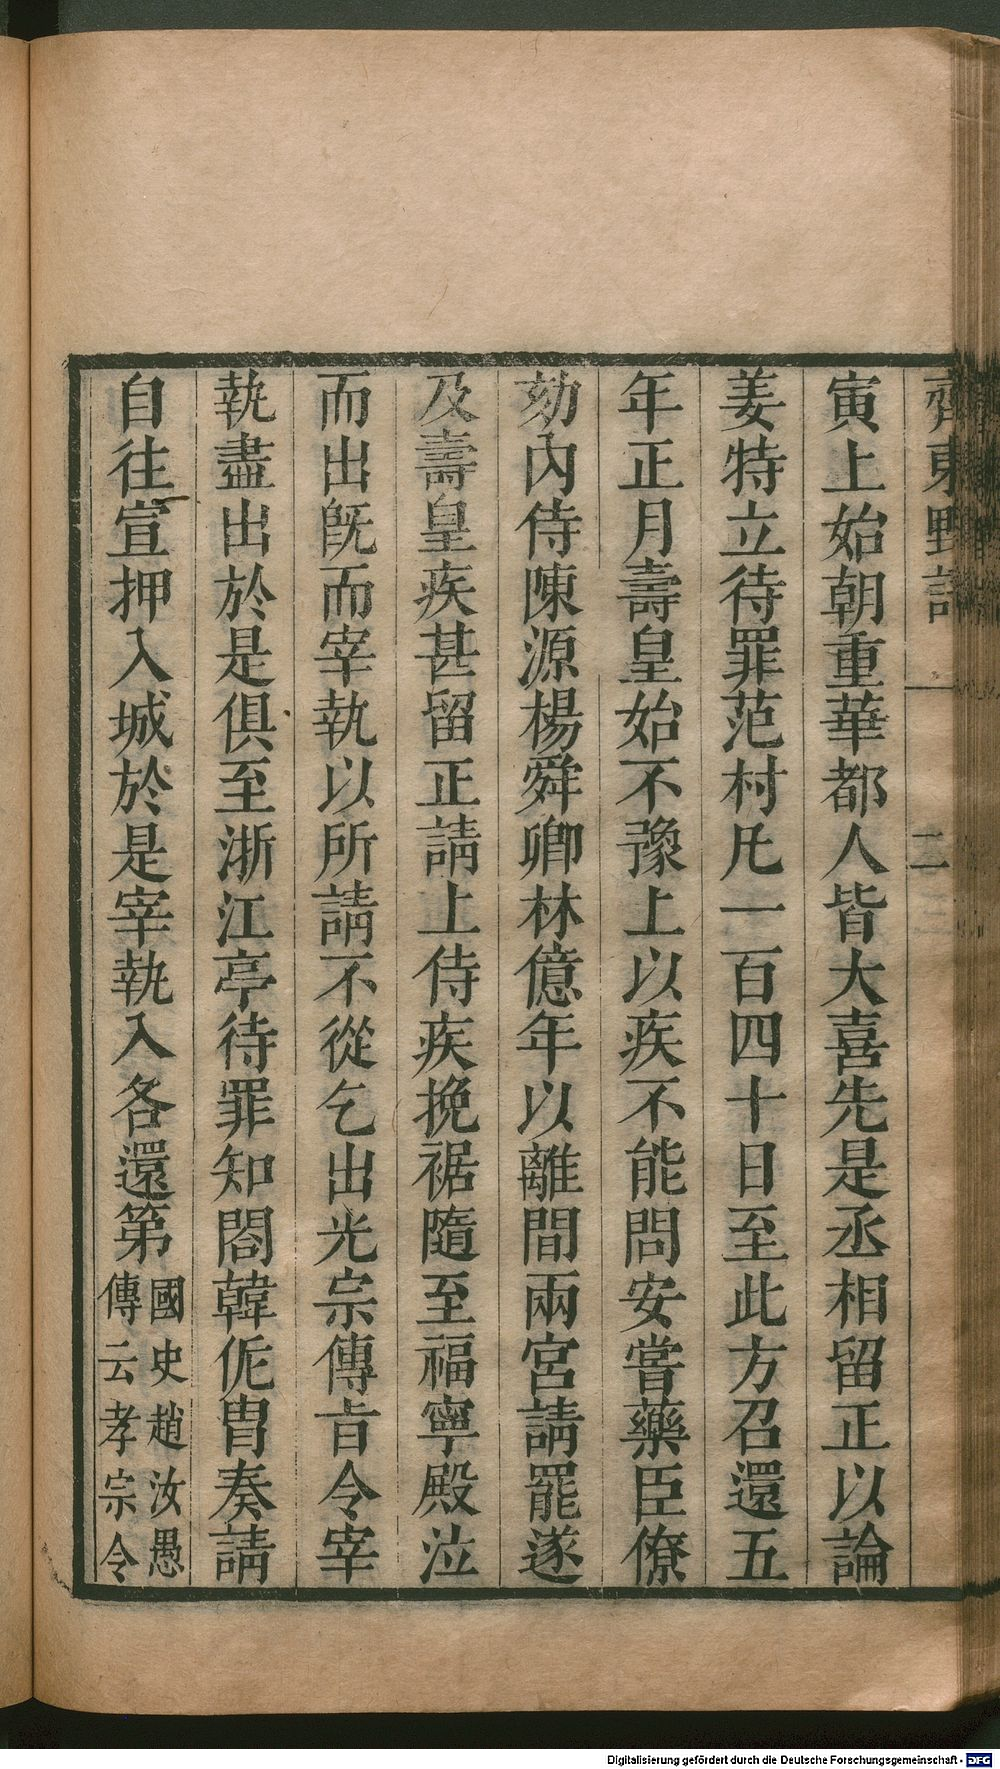 齊東野語
二
寅上始朝重華都人皆大喜先是丞相留正以論
姜特立待罪范村凡一百四十日至此方召還五
年正月壽皇始不豫上以疾不能問安嘗藥臣僚
劾內侍陳源楊舜卿林億年以離間兩宮請罷遂
及壽皇疾甚留正請上侍疾挽裾隨至福寧殿泣
而出旣而宰執以所請不從乞出光宗傳旨令宰
執盡出於是俱至浙江亭待罪知閤韓侂胄奏請
自往宣押入城於是宰執入各還第
國史趙汝愚
傳云孝宗令
Digitalisierung gefördert durch die Deutsche Forschungsgemeinschaft - DFG